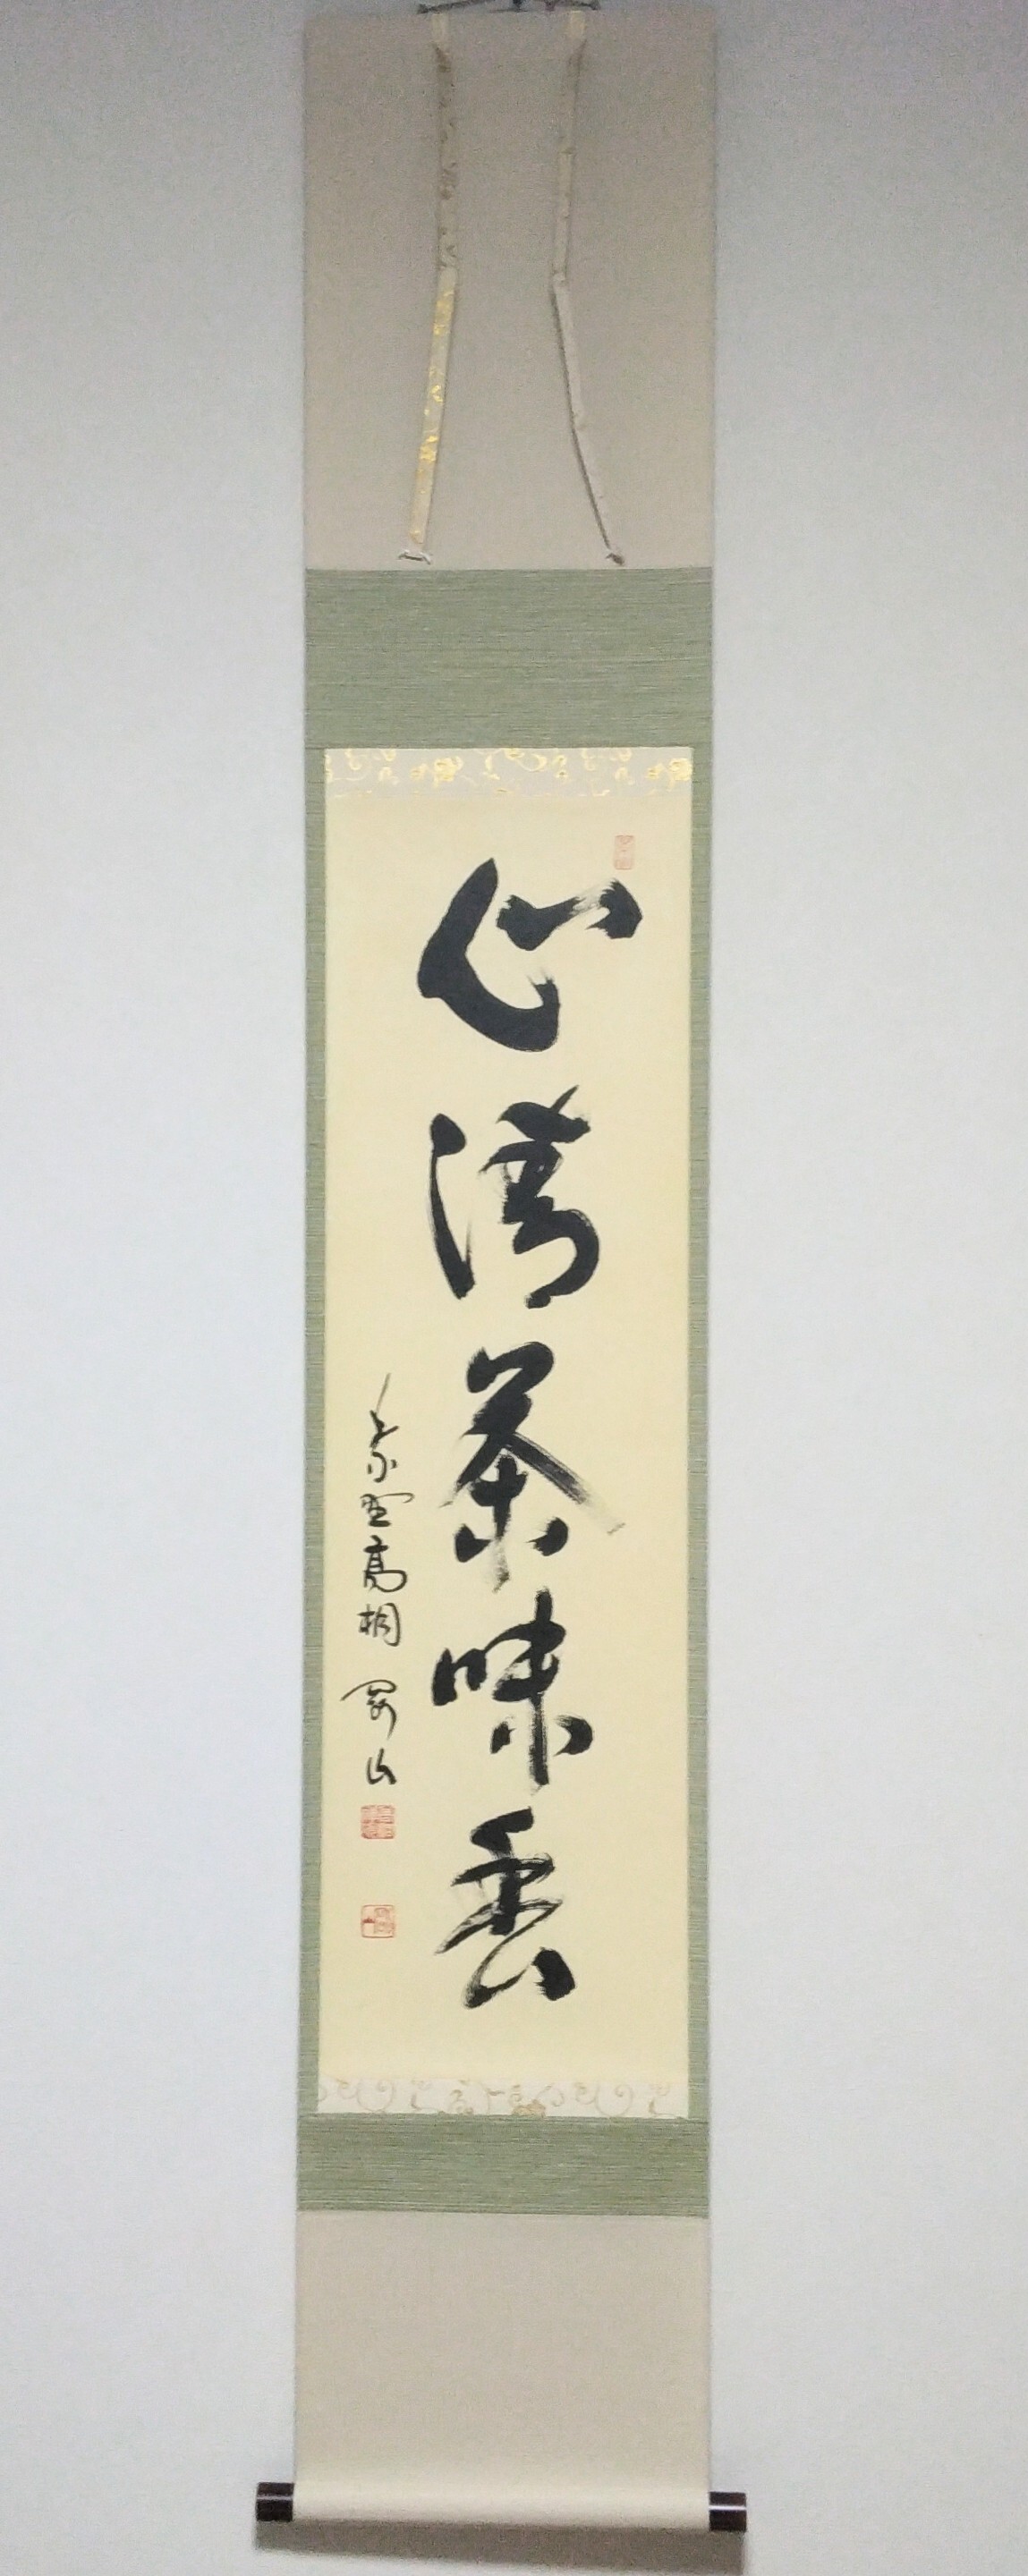 心清茶味香
紫野高桐 寛山